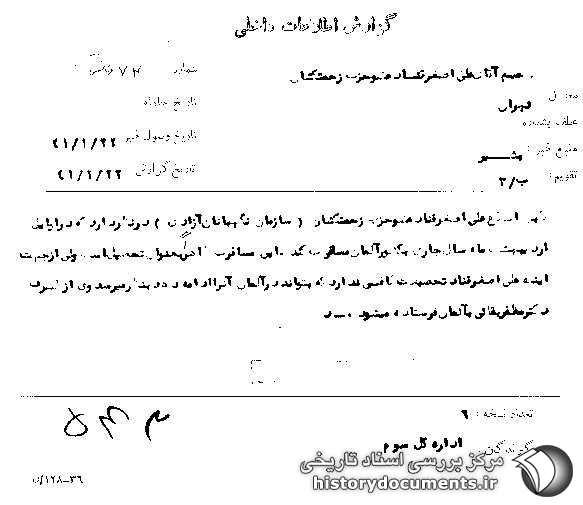 گزارش اطلاعات داخلی
شماره ۷۴
علی اصغر قناد عضو حزب زحمتکشان
تاریخ حادثه
محل تهران
تاریخ وصول خبر ۴۱/۱/۲۲
عطف بشماره
منبع خبر:
تاریخ گزارش ۴۱/۱/۲۲
تقویم: ب/۳
علی اصغر قناد عضو حزب زحمتکشان (سازمان نگهبانان آزادی) در نظر دارد که در اوایل
اردیبهشت ماه سال جاری بکشور آلمان مسافرت کند. این مسافرت بعنوان تحصیل است ولی از جهت
اینکه علی اصغر قناد تحصیلات کافی ندارد که بتواند در آلمان آنرا ادامه دهد بنظر میرسد وی از طرف
دکتر مظفر بقائی بآلمان فرستاده میشود.
تعداد نسخه: ۶
گیرندگان: اداره کل سوم
۱۲۸-۳۶
مرکز بررسی اسناد تاریخی
historydocuments.ir